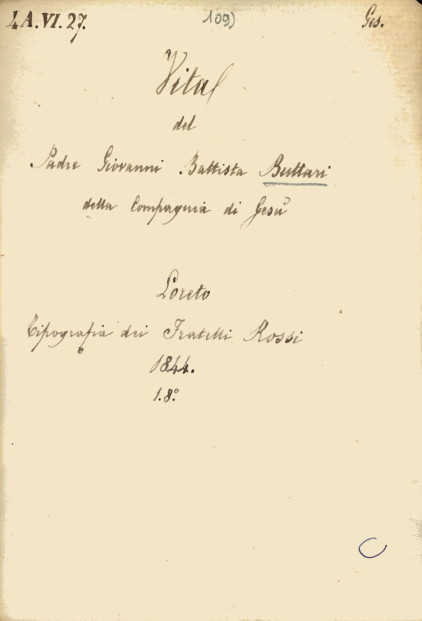 4 A.VI.27. 109) Ges.
Vita
del
Padre Giovanni Battista Buttari
della Compagnia di Gesù
Loreto
Tipografia dei Fratelli Rossi
1844.
1.8°
C